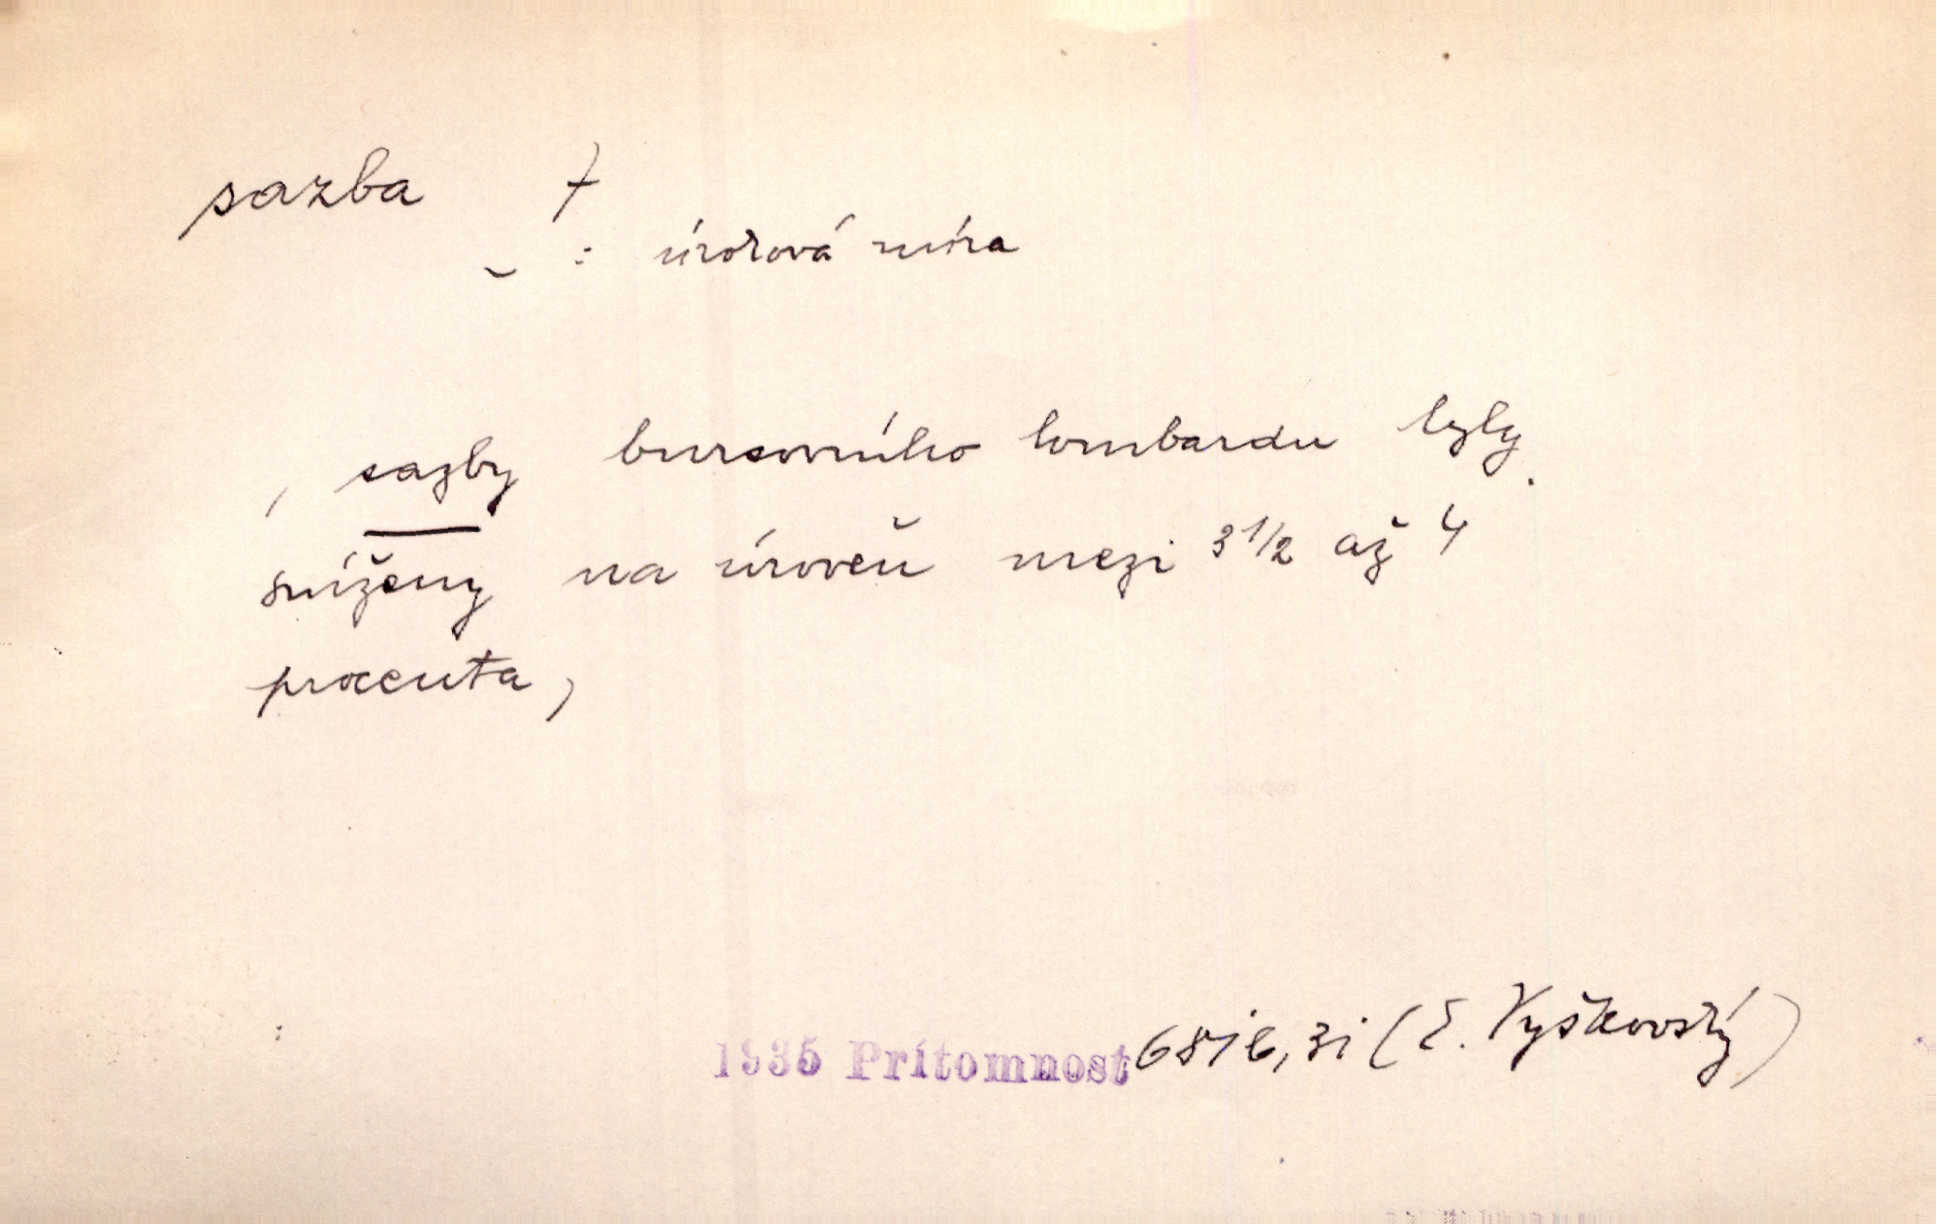 sazba f
– : úroková míra
, sazby bursovního lombardu byly
sníženy na úroveň mezi 3 1/2 až 4
procenta,
1935 Prítomnost 681b, 3i (E. Vyškovský)